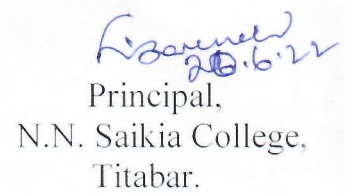 20.6.22
Principal,
N.N. Saikia College,
Titabar.